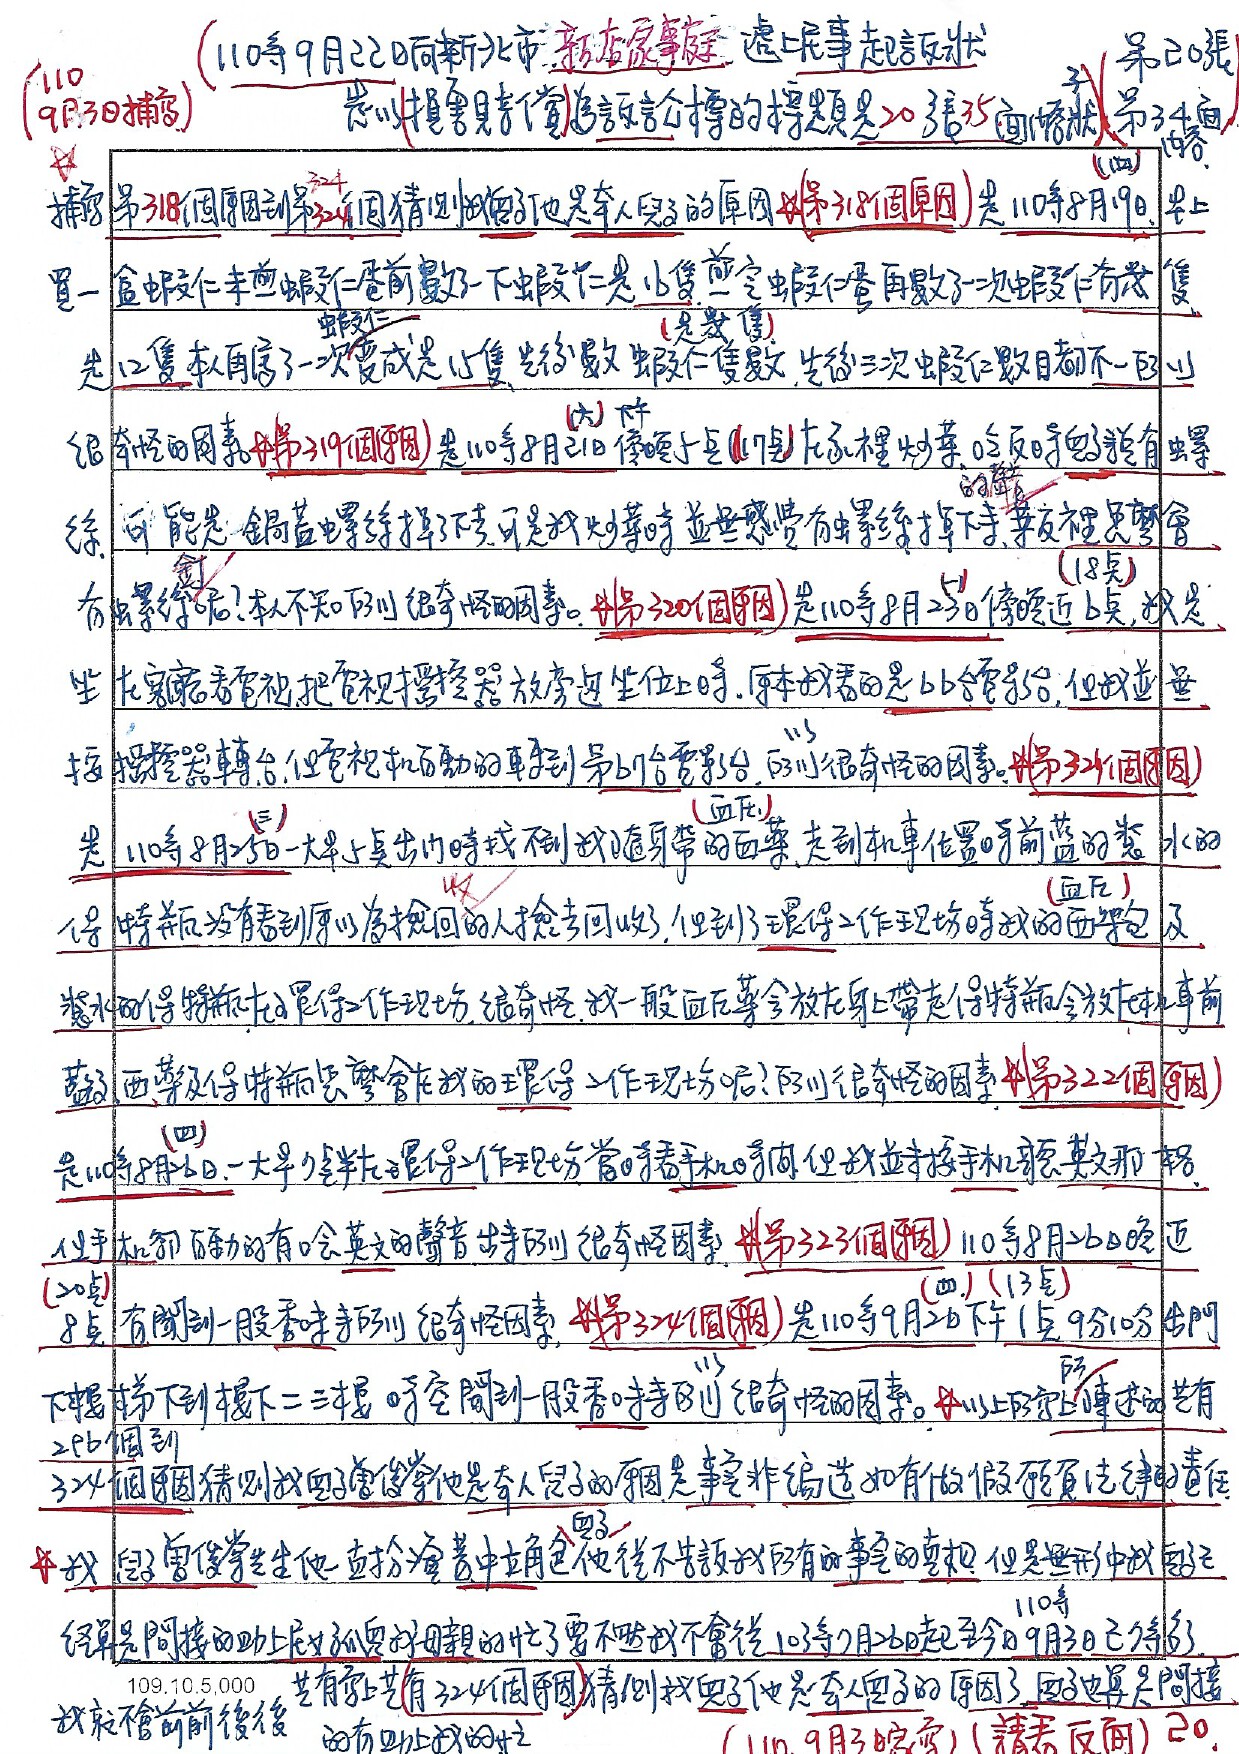 (110年9月22日向新北市新店家事庭遞上民事起訴狀 第20張
(110 9月3日補寫) 是以(損害賠償)為訴訟標的標題是20張35面內容狀 (第34面內容
補寫第318個原因到第324個猜測我兒子他是本人兒子的原因(第318個原因)是110年8月19日(四)早上
買一盒蝦仁未煎蝦仁蛋前數了一下蝦仁是16隻煎完蝦仁蛋再數了一次蝦仁有幾隻
(是幾隻)
是12隻,本人再算了一次蝦仁變成是15隻,先後數蝦仁隻數,先後三次蝦仁數目都不一所以
很奇怪的因素。(第319個原因)是110年8月21日(六)下午傍晚5点(17点)在家裡炒菜吃飯時兒子說有螺
絲可能是鍋蓋螺絲掉了下去,可是我炒菜時並無感覺有螺絲掉下去的聲音,菜飯裡怎麼會
有螺絲釘呢?本人不知所以很奇怪的因素。(第320個原因)是110年8月23日(一)傍晚近6点(18点),我是
坐在客廳看電視,把電視搖控器放旁邊坐位上時,原本我看的是66台電影台,但我並無
按搖控器轉台,但電視机自動的轉到第67台電影台,所以很奇怪的因素。(第321個原因)
是110年8月25日(三)一大早5点出門時找不到我隨身帶的(血压)西藥,走到机車位置時前籃的裝水的
保特瓶沒有看到原以為撿回收的人撿去回收了,但到了環保工作現場時我的(血压)西藥包及
裝水的保特瓶在環保工作現場,很奇怪,我一般血压藥會放在身上帶走保特瓶會放在机車前
籃,西藥及保特瓶怎麼會在我的環保工作現場呢?所以很奇怪的因素(第322個原因)
是110年8月26日(四)一大早7点半在環保工作現場當時看手机時間,但我並未按手机聽英文那
但手机卻自動的有唸英文的聲音出來所以很奇怪因素(第323個原因)110年8月26日晚近
8点(20点)有聞到一股香味來所以很奇怪因素,(第324個原因)是110年9月2日(四)下午1点(13点)9分10分出門
下樓梯下到樓下二三樓時空聞到一股香味來所以很奇怪的因素。以上所寫上所陳述的共有
296個到
324個原因猜測我兒子曾俊榮他是本人兒子的原因是事實非編造如有做假願負法律的責任
我兒子曾俊榮先生他一直扮演著中立角色,兒子他從不告訴我所有的事實的真相,但是無形中我兒子已
經算是間接的助上我認母親的忙了要不然我不會從103年7月26日起至今日110年9月3日已7年多
109.10.5,000
共有寫上共(有324個原因)猜測我兒子他是本人兒子的原因了,兒子也算是間接
我就不會前前後後
的有助上我的忙
(110.9月3號寫)(請看反面)20.